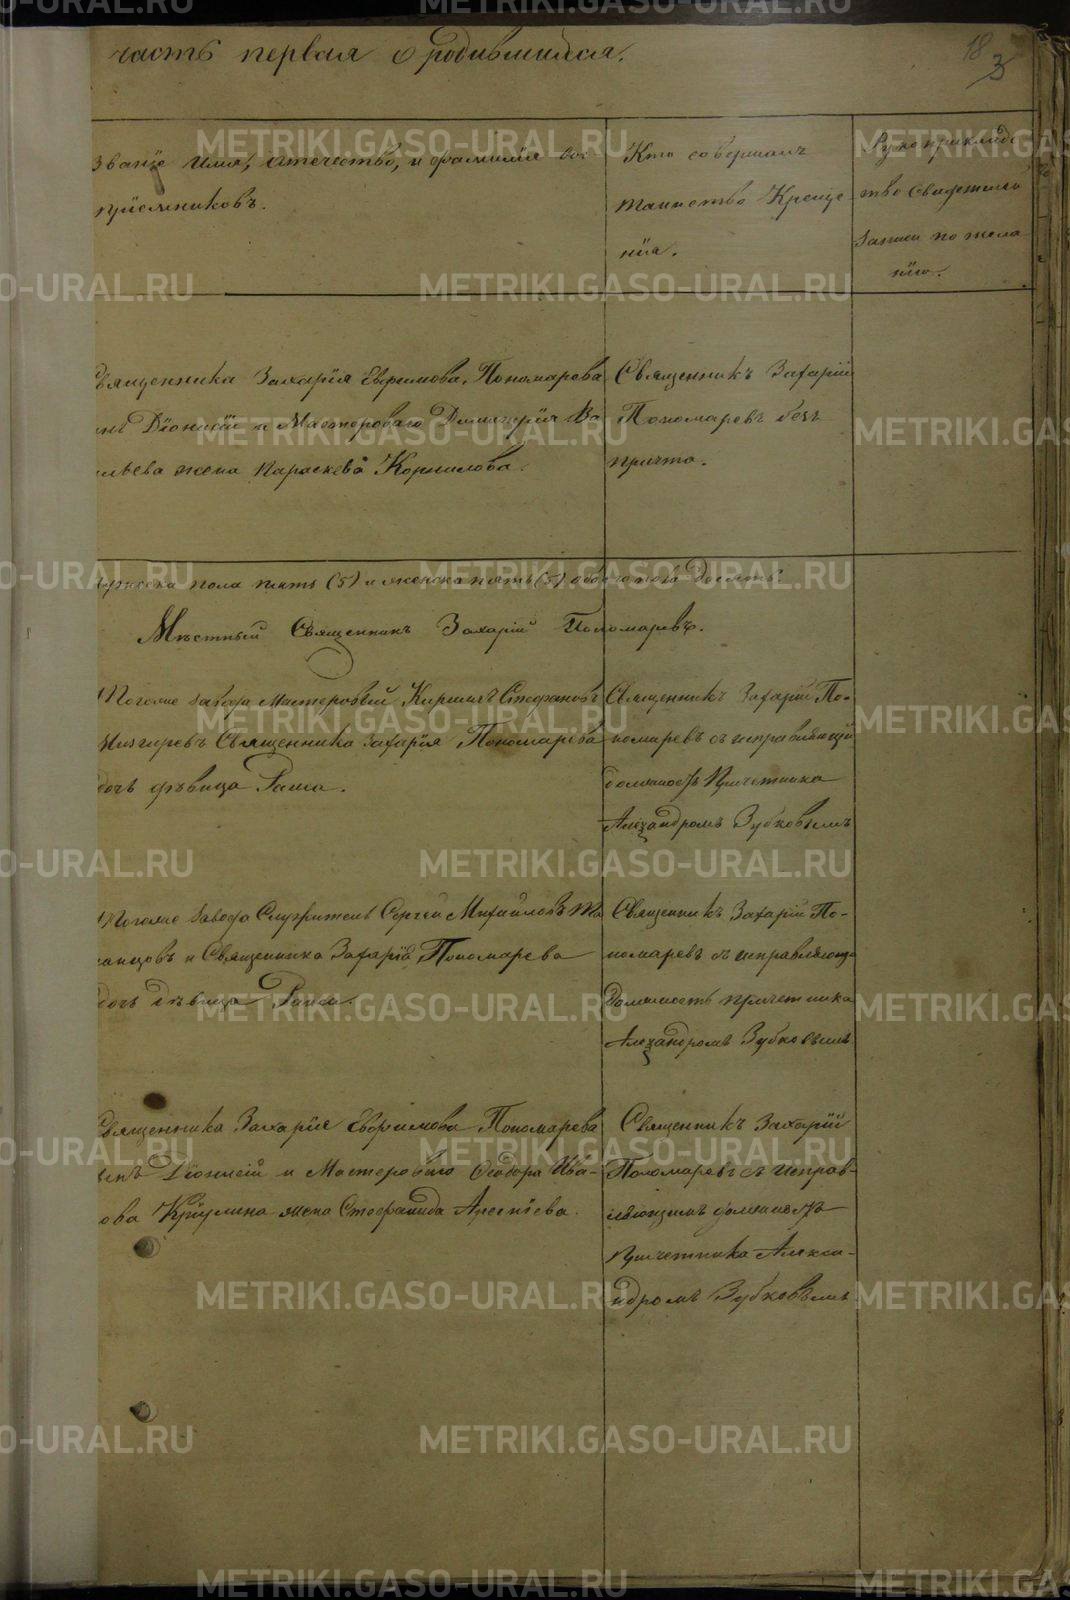 часть первая о родившихся.
18
3
Званiе имя, отечество, и фамилiя вос
прiемниковъ.
Кто совершалъ
таинство Креще
нiя.
Рукоприкладс
тво свидетелей
записи по жела
нiю.
Священника Захарiя Евфимова, Пономарева
сынъ Дiонисiй и Мастероваго Димитрiя Ва
сильева жена Параскева Корнилова.
Священникъ Захарiй
Пономаревъ безъ
причта.
мужеска пола пять (5) и женска пять (5) обоего пола десять.
Мѣстный Священникъ Захарiй Пономаревъ.
завода Мастеровый Кириллъ Стефановъ
Священника Захарiя Пономарева
дочь дѣвица Раиса.
Священникъ Захарiй По-
номаревъ съ исправляющ
должность Причетника
Александромъ Зубковымъ
завода Служитель Сергей Михайловъ
и Священника Захарiя Пономарева
дочь дѣвица Раиса.
Священникъ Захарiй По-
номаревъ съ исправляющ
Должность причетника
Александромъ Зубковымъ
Священника Захарiя Евфимова Пономарева
сынъ Дiонисiй и Мастероваго Феодора Ива-
нова жена Стефанида Арсенiева.
Священникъ Захарiй
Пономаревъ съ исправ-
ляющимъ должность
Причетника Алекса-
ндромъ Зубковымъ
METRIKI.GASO-URAL.RU